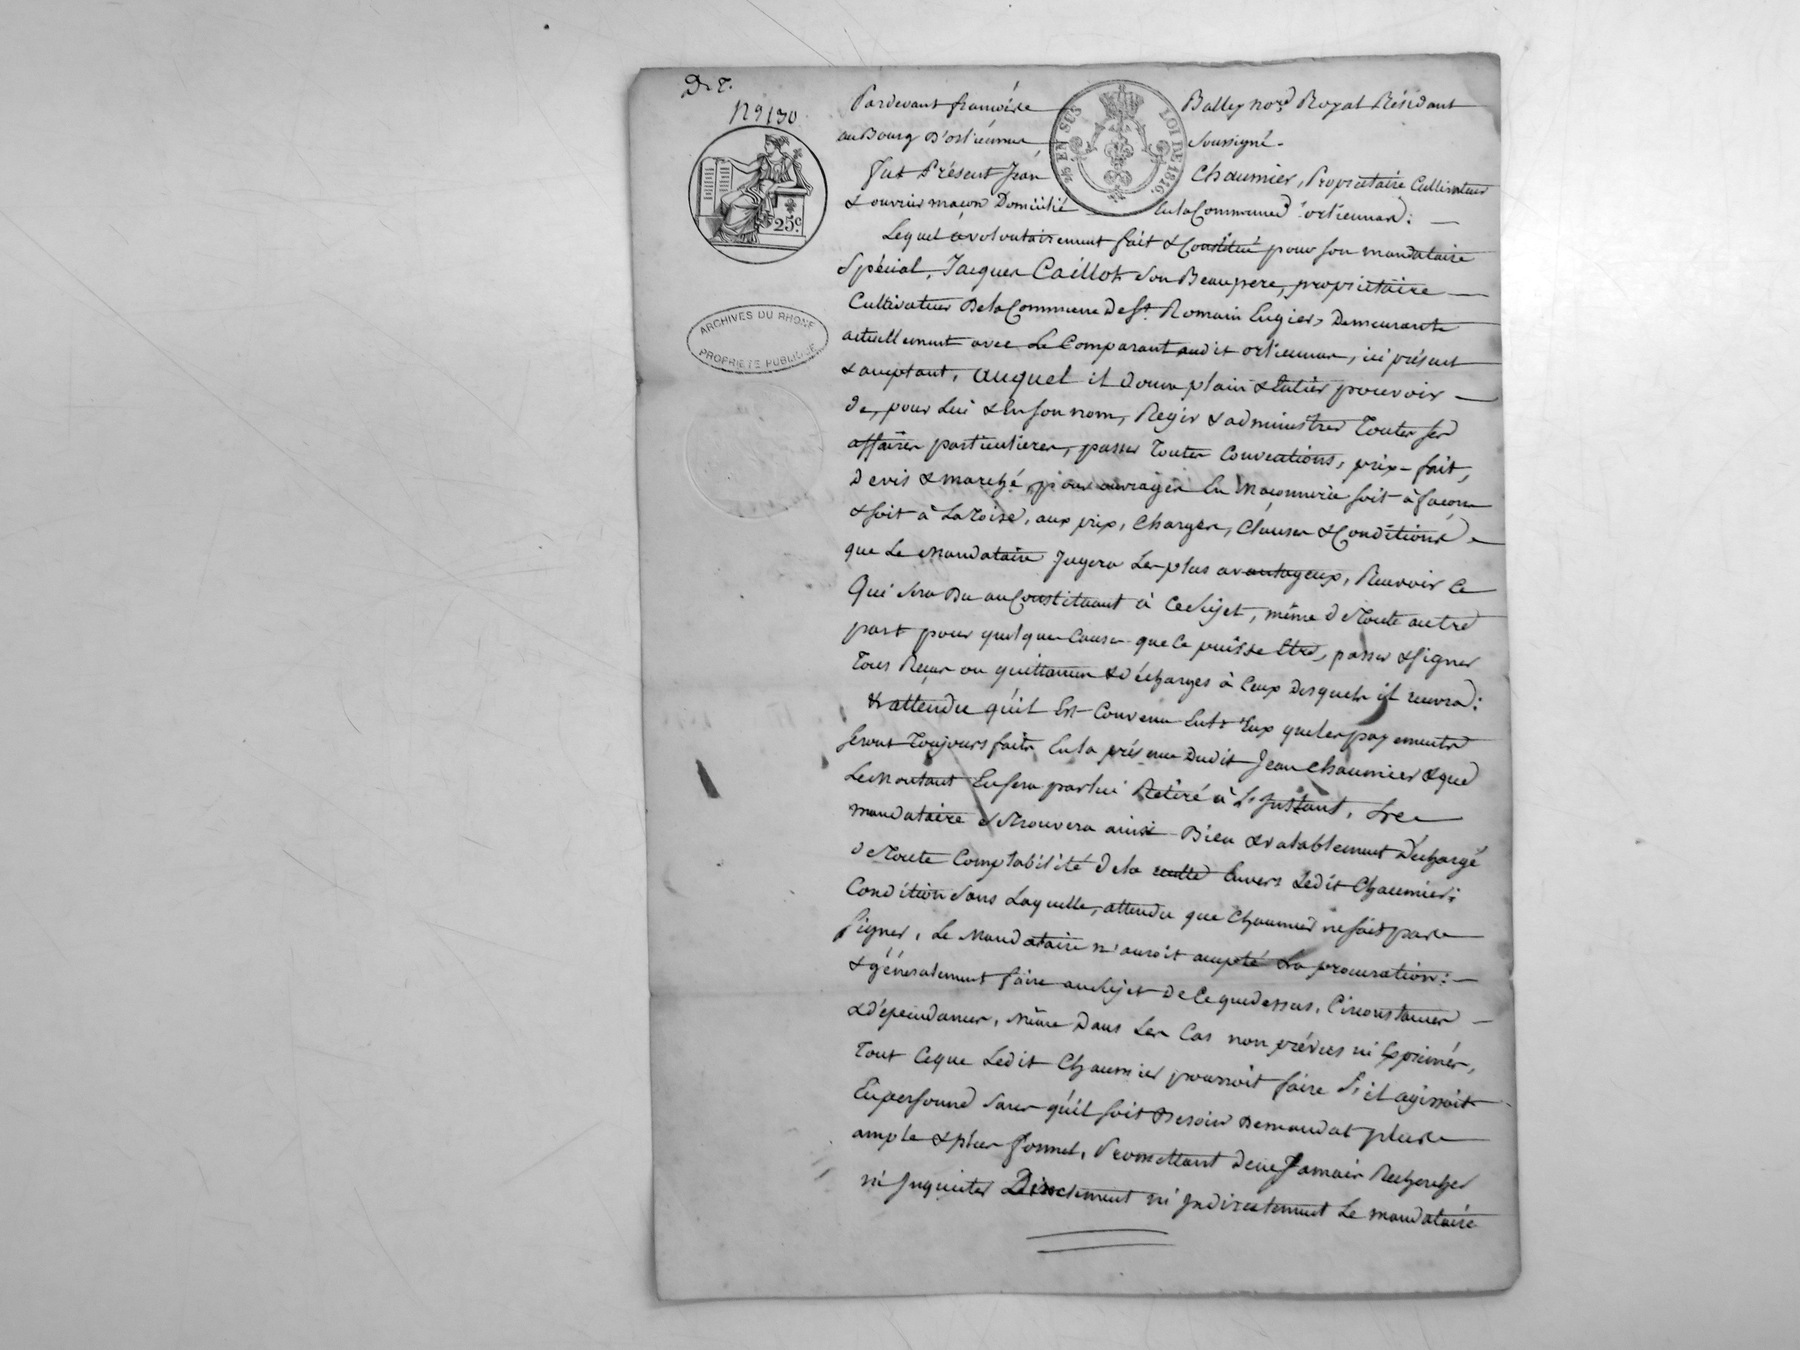 D. T.
N° 130
25 EN SUS LOI DE 1816.
25c
ARCHIVES DU RHONE
PROPRIÉTÉ PUBLIQUE
Pardevant françois Balley no.re Royal Résidant
au Bourg D'ortiénnas soussigné.
fut Présent Jean Chaumier, Propriétaire Cultivateur
& ouvrier maçon Domicilié En la Commune d'ortiennas:
Lequel a volontairement fait & Constitué pour son mandataire
Spécial, Jacques Caillot son Beaupere, propriétaire
Cultivateur De la Commune De St. Romain Demeurant
actuellement avec Le Comparant audit ortiennas, ici présent
& acceptant, auquel il donne plain & Entier pouvoir
de, pour Lui & En son nom, Regir & administrer Toutes ses
affaires particulieres, passer Toutes Conventions, prix-fait,
Devis & marché, pour ouvrages En maçonnerie soit à façon
& soit à La Toise, aux prix, Charges, Clauses & Conditions
que Le Mandataire Jugera Les plus avantageux, Recevoir Ce
Qui sera Du au Constituant à Ce sujet, même de Toute autre
part pour quelque Cause que Ce puisse Etre, passer & signer
Tous Reçus ou quittances & décharges à Ceux Desquels il recevra:
& attendu qu'il Est Convenu Entr'Eux que Les payements
seront Toujours faits En la présence Dudit Jean Chaumier & que
Le Montant En sera par lui Retiré à L'Instant, & Le
mandataire se Trouvera ainsi Bien & valablement Déchargé
de Toute Comptabilité de la Envers Ledit Chaumier;
Condition sans Laquelle, attendu que Chaumier ne sait pas
signer, Le Mandataire n'auroit accepté La procuration:
& généralement faire au sujet De Ce que dessus, Circonstances
& dépendances, même Dans Les Cas non prévus ni Exprimés,
Tout Ce que Ledit Chaumier pourroit faire s'il agissoit
En personne sans qu'il soit Besoin De mandat plus
ample & plus formel, Promettant De ne Jamais Rechercher
ni Inquieter Directement ni Indirectement Le mandataire